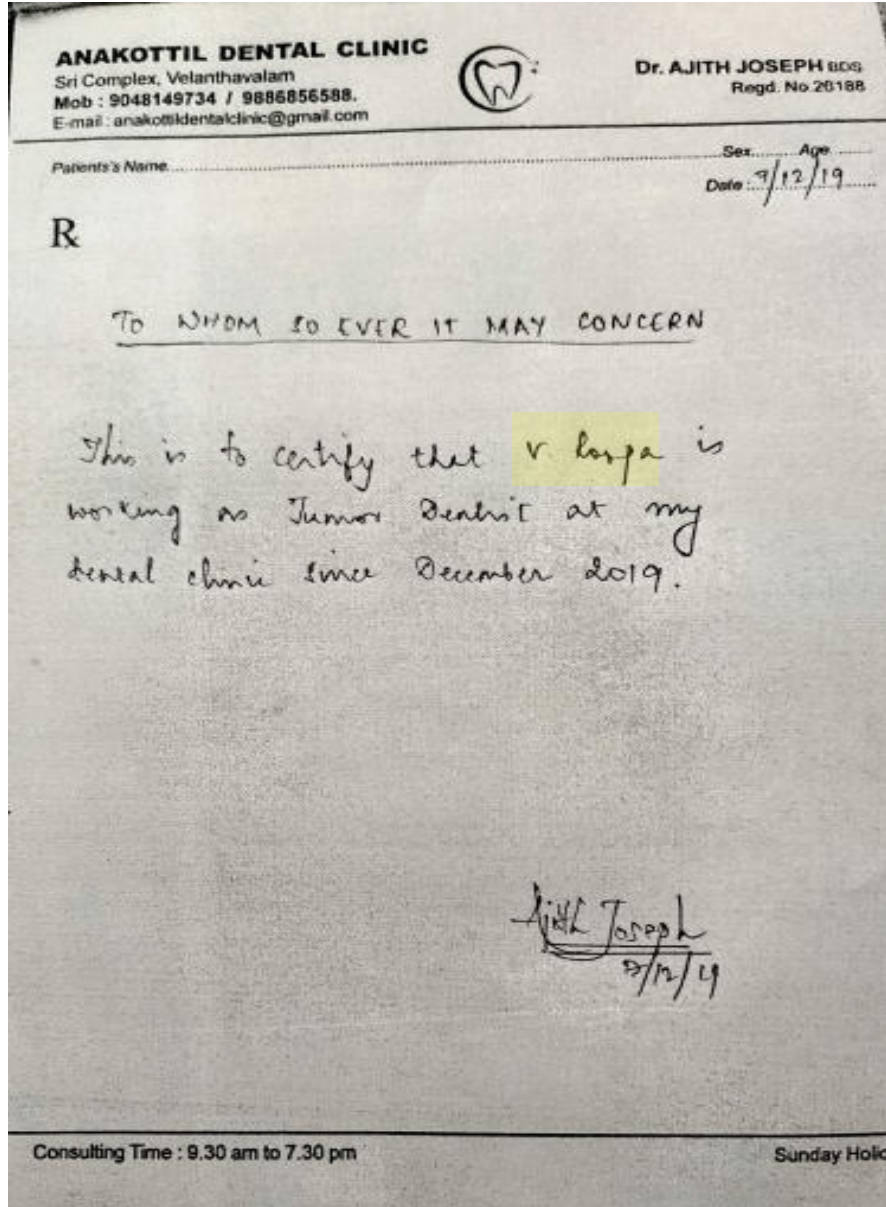 ANAKOTTIL DENTAL CLINIC
Sri Complex, Velanthavalam
Mob : 9048149734 / 9886856588.
E-mail : anakottildentalclinic@gmail.com
Dr. AJITH JOSEPH BDS
Regd. No.26188
Patients's Name
Sex Age
Date : 9/12/19
Rx
TO WHOM SO EVER IT MAY CONCERN
This is to certify that V. is
working as Junior Dentist at my
dental clinic since December 2019.
Ajith Joseph
9/12/19
Consulting Time : 9.30 am to 7.30 pm
Sunday Holi